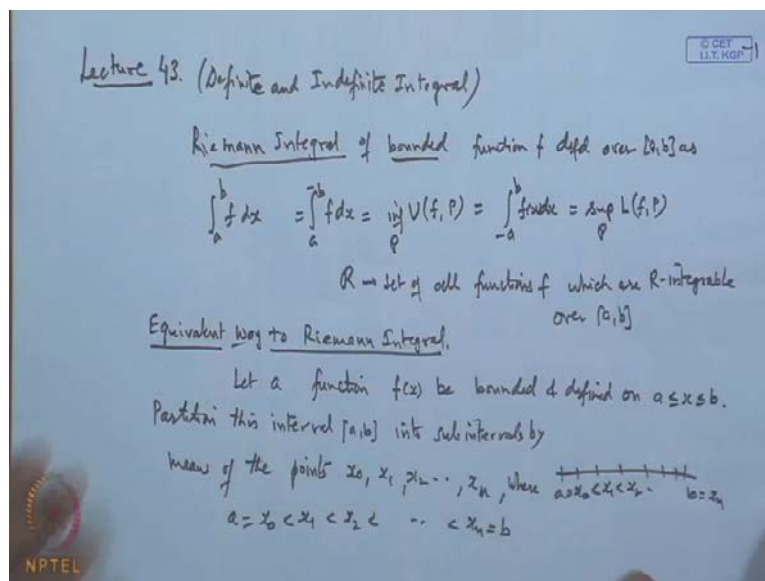 © CET
I.I.T. KGP
Lecture 43. (Definite and Indefinite Integral)
Riemann Integral of bounded function f defd over [a,b] as
∫_a^b f dx = ∫_a^{-b} f dx = inf_P U(f, P) = ∫_{-a}^b f(x)dx = sup_P L(f, P)
R → set of all functions f which are R-integrable
over [a,b]
Equivalent way to Riemann Integral.
Let a function f(x) be bounded & defined on a ≤ x ≤ b.
Partition this interval [a,b] into subintervals by
means of the points x₀, x₁, x₂ .., xₙ, where
a=x₀<x₁<x₂.. b=xₙ
a = x₀ < x₁ < x₂ < .. < xₙ = b
NPTEL